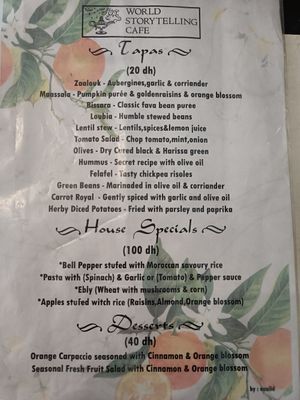 WORLD
STORYTELLING
CAFE
Tapas
(20 dh)
Zaalouk - Aubergines,garlic & corriander
Maassala - Pumpkin purée & goldenraisins & orange blossom
Bissara - Classic fava bean purée
Loubia - Humble stewed beans
Lentil stew - Lentils,spices&lemon juice
Tomato Salad - Chop tomato,mint,onion
Olives - Dry Cured black & Harissa green
Hummus - Secret recipe with olive oil
Felafel - Tasty chickpea risoles
Green Beans - Marinaded in olive oil & corriander
Carrot Royal - Gently spiced with garlic and olive oil
Herby Diced Potatoes - Fried with parsley and paprika
House Specials
(100 dh)
*Bell Pepper stufed with Moroccan savoury rice
*Pasta with (Spinach) & Garlic or (Tomato) & Pepper sauce
*Ebly (Wheat with mushrooms & corn)
*Apples stufed witch rice (Raisins,Almond,Orange blossom)
Desserts
(40 dh)
Orange Carpaccio seasoned with Cinnamon & Orange blossom
Seasonal Fresh Fruit Salad with Cinnamon & Orange blossom
by :